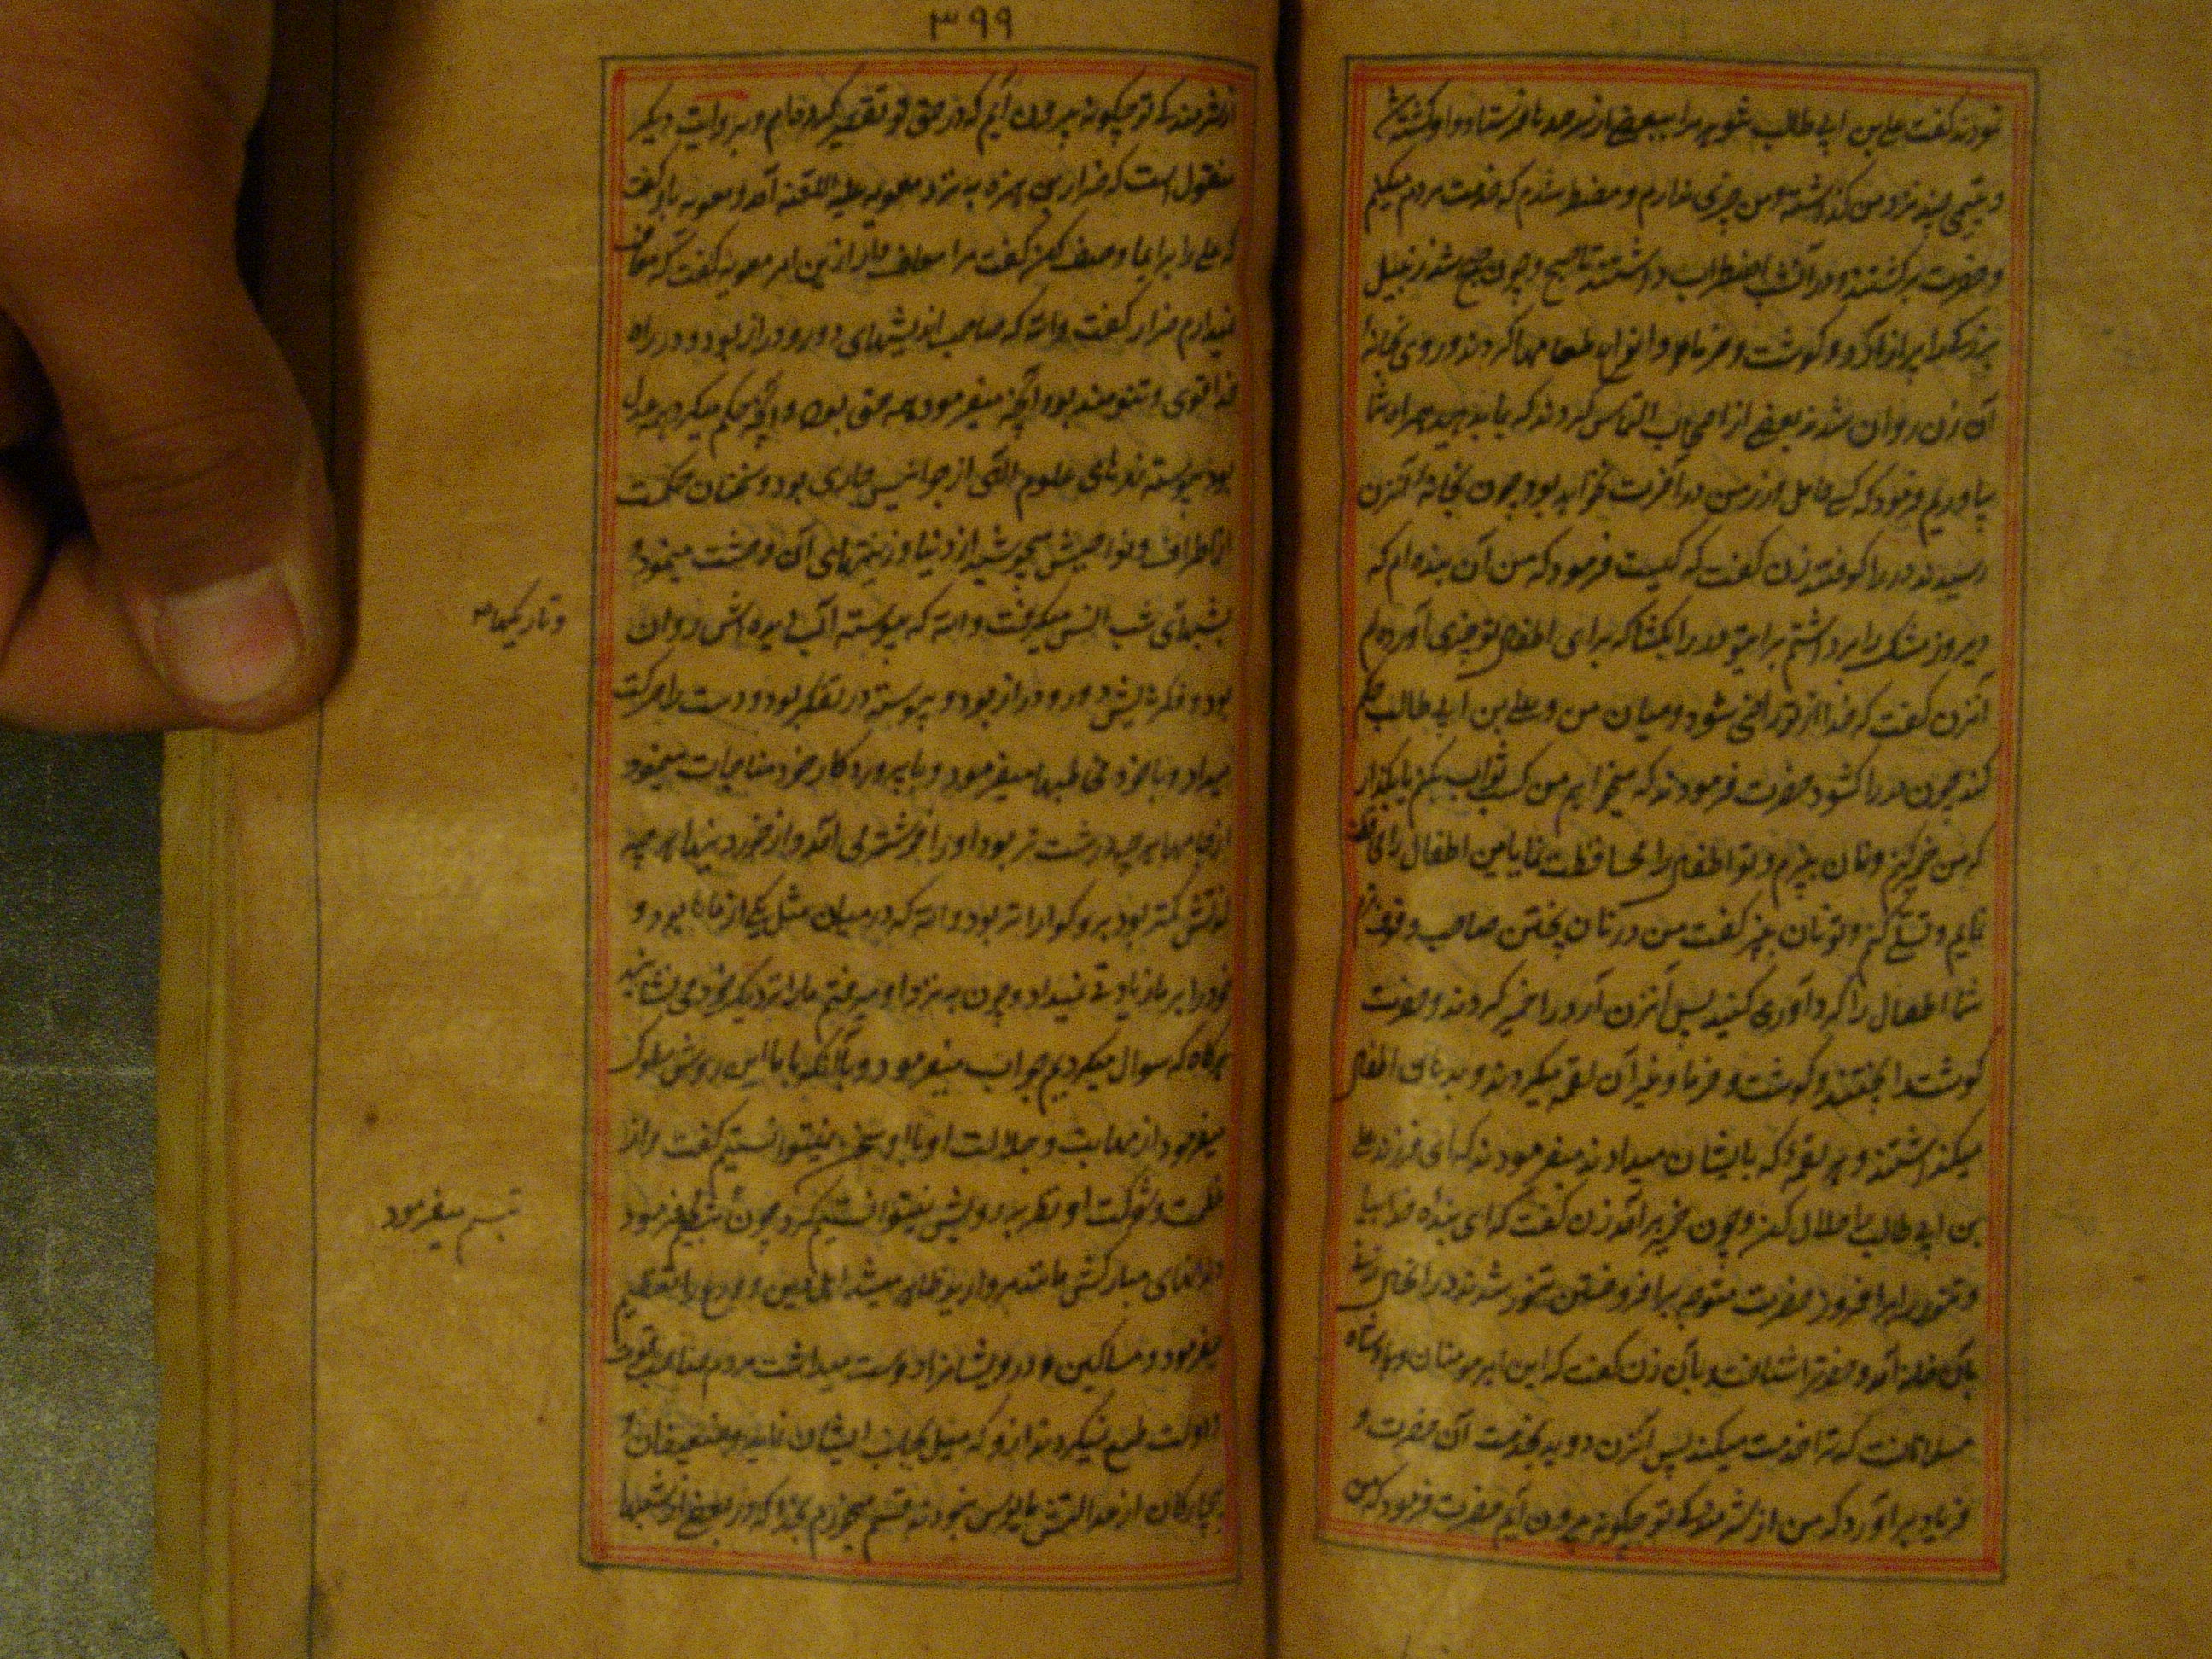 نمودند گفت علی بن ابی طالب شوهر مرا ببعضی از سرحدها فرستاد و او کشته شد
و یتیمی چند نزد من گذاشته و من چیزی ندارم و مضطر شدم که خدمت مردم میکنم
و حضرت برگشتند و در آنشب اضطراب داشتند تا صبح و چون صبح شد زنبیل
بزرگی را پر از آرد و گوشت و خرما و انواع طعامها کردند و روی بخانهٔ
آن زن روان شدند بعضی از اصحاب التماس کردند که ما همراه شما
بیاوریم فرمود که کی حامل وزر من در آخرت خواهد بود چون بخانه آنزن
رسیدند در را کوفتند زن گفت که کیست فرمود که من آن بنده ام که
دیروز مشک را برداشتم برای تو در را بگشا که برای اطفال تو چیزی آورده ام
آنزن گفت که خدا از تو راضی شود و میان من و علی بن ابی طالب حکم
کند چون در را گشود حضرت فرمودند که میخواهم من کسب ثواب بکنم یا بگذار
که من خمیر کنم و نان بپزم و تو اطفال را محافظت نما یا من اطفال را
نمایم و تسلی کنم و تو نان بپز گفت من در نان پختن صاحب وقوف ترم
شما اطفال را گردآوری کنید پس آنزن آرد را خمیر کردند و حضرت
گوشت را پختند و گوشت و خرما و غیر آن لقمه میکردند و بدهان اطفال
میگذاشتند و هر لقمهٔ که بایشان میدادند میفرمودند که ای فرزند علی
بن ابی طالب را حلال کن و چون خمیر برآمد زن گفت که ای بنده خدا بیا
و تنور را برافروز حضرت متوجه برافروختن تنور شدند در آنحال زنی
بآن خانه آمد و حضرت را شناخت و بآن زن گفت که این امیر مومنان و پادشاه
مسلمانانست که ترا خدمت میکند پس آنزن دوید بخدمت آن حضرت و
فریاد برآورد که من از شرمندگی تو چگونه بیرون آیم حضرت فرمود که من
۳۹۹
از شرمندگی تو چگونه بیرون آیم که در حق تو تقصیر کرده ام و بروایت دیگر
منقول است که ضرار بن ضمره به نزد معویه علیه اللعنه آمد و معویه باو گفت
که علی را برای ما وصف کن گفت مرا معاف دار ازین امر معویه گفت که معاف
نمیدارم ضرار گفت والله که صاحب اندیشهای دور و دراز بود و در راه
خدا قوی و تنومند بود و آنچه میفرمود همه حق بود و آنچه حکم میکرد همه عدل
بود پیوسته نهرهای علوم الهی از جوانبش جاری بود و سخنان حکمت
از اطراف و نواحیش میجوشید از دنیا و زینتهای آن وحشت مینمود و
بشبهای شب انس میگرفت والله که پیوسته آب دیده اش روان
بود و فکرهایش دور و دراز بود و پیوسته در تفکر بود و دست را حرکت
میداد و با خود خطابها میفرمود و با پروردگار خود مناجات مینمود
از جامها هر چه درشت تر بود او را خوشتر می آمد و از خوردنیها هر چه
لذتش کمتر بود برو گواراتر بود والله که در میان ما مثل یکی از ما بود و
خود را بر ما زیادتی نمیداد و چون به نزد او میرفتیم ما را نزدیک خود می نشانید
هرگاه که سوال میکردیم جواب میفرمود و با آنکه با ما این روش سلوک
میفرمود از مهابت و جلالت او با او سخن نمیتوانستیم گفت و از
عظمت و شوکت او نظر بر رویش نمیتوانستیم کرد چون
دندانهای مبارکش مانند مروارید ظاهر میشد اهل دین و ورع را تعظیم
میفرمود و مساکین و درویشانرا دوست میداشت مردم صاحب قوت
و دولت طمع نمیکردند ازو که میل بجانب ایشان نماید و ضعیفان و
بیچارگان از عدالتش مایوس نبودند قسم میخورم بخدا که در بعضی از شبها
و تاریکیها
تبسم میفرمود